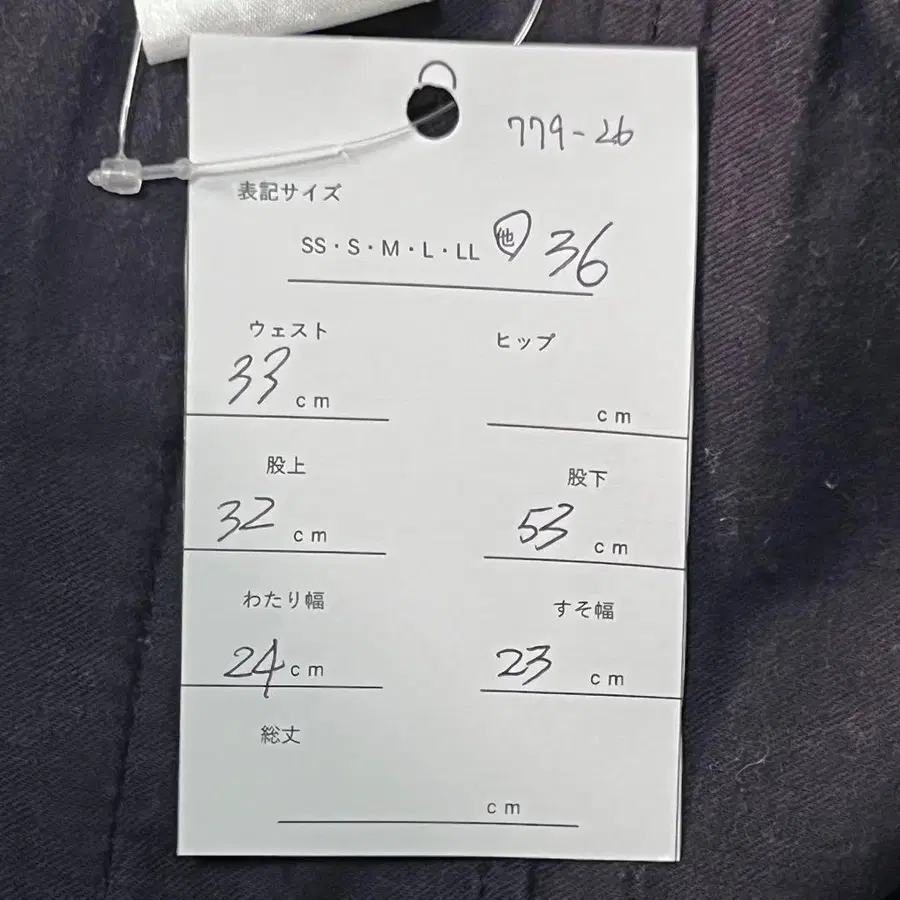 779-26
表記サイズ
SS・S・M・L・LL 他 36
ウェスト ヒップ
33 cm cm
股上 股下
32 cm 53 cm
わたり幅 すそ幅
24 cm 23 cm
総丈
cm